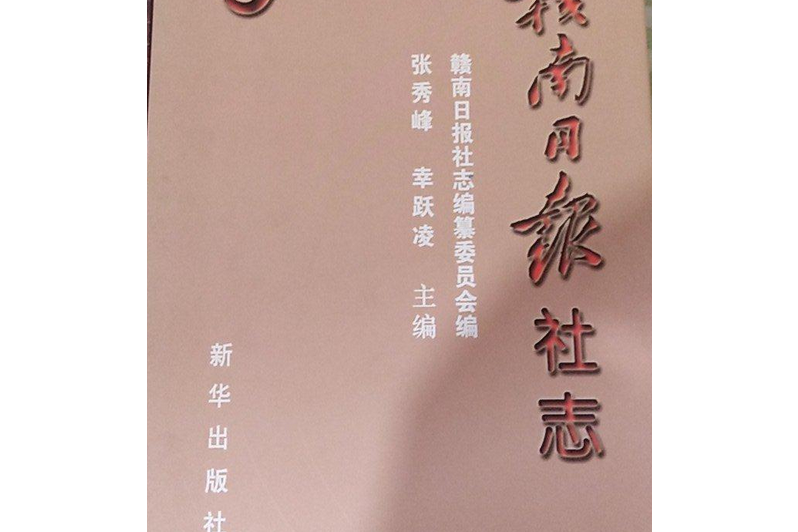 赣南日報社志
赣南日报社志编纂委员会编
张秀峰 幸跃凌 主编
新华出版社